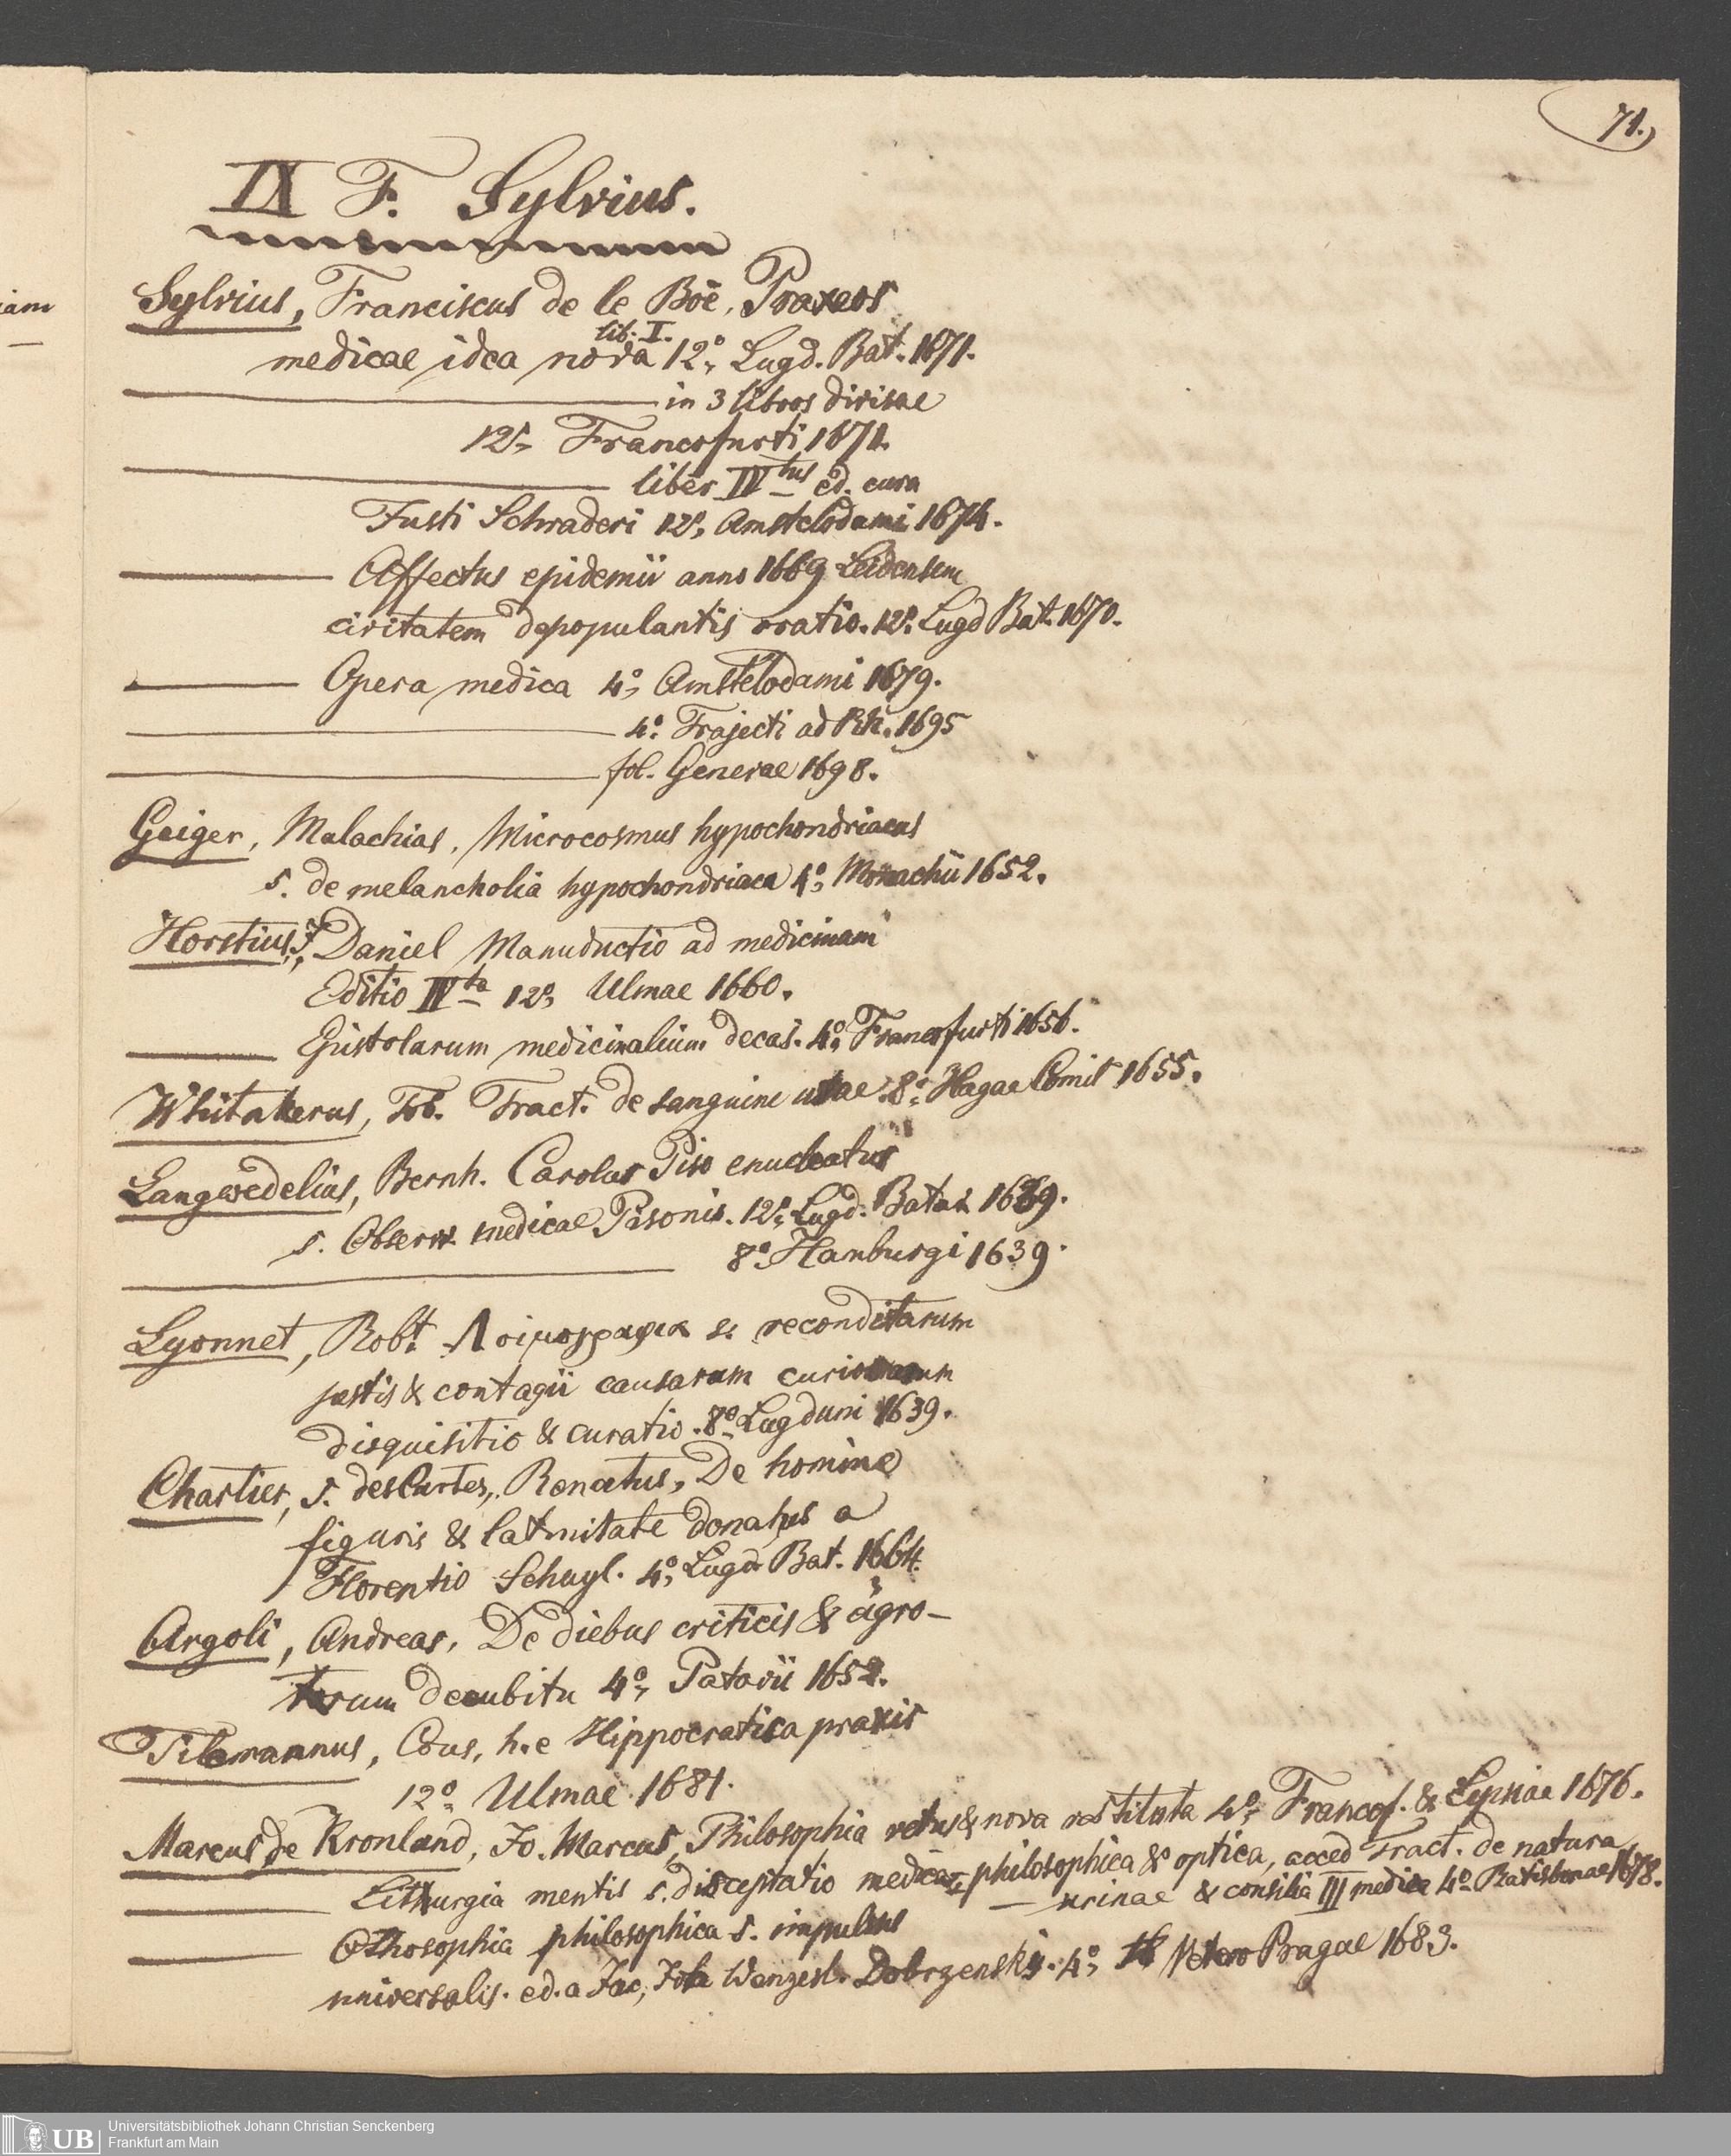 71.
IX F. Sylvius.
Sylvius, Franciscus de le Boë, Praxeos
medicae idea nova lib. I. 12°, Lugd. Bat. 1671.
in 3 libros divisae
12°, Francofurti 1671.
liber IVtus ed. cura
Justi Schraderi 12°, Amstelodami 1674.
Affectus epidemii anno 1669 Leidensem
civitatem depopulantis oratio. 12°. Lugd Bat. 1670.
Opera medica 4°, Amstelodami 1679.
4°. Trajecti ad Rh. 1695
fol. Generae 1698.
Geiger, Malachias, Microcosmus hypochondriacus
s. de melancholia hypochondriaca 4°, Monachii 1652.
Horstius, J, Daniel Manuductio ad medicinam
Editio IVta 12°, Ulmae 1660.
Epistolarum medicinalium decas. 4°, Francofurti 1656.
Whitakerus, Tob. Tract. de sanguine uvae. 8°, Hagae Comit 1655.
Langwedelius, Bernh. Carolus Piso enucleatus
s. Observ. medicae Pisonis. 12°, Lugd. Batav. 1639.
8° Hamburgi 1639.
Lyonnet, Robt. Λοιμογραφια s. reconditarum
pestis & contagii causarum curiosarum
disquisitio & curatio. 8° Lugduni 1639.
Chartier, s. desCartes, Renatus, De homine
figuris & latinitate donatus a
Florentio Schuyl. 4°, Lugd. Bat. 1664.
Argoli, Andreas, De diebus criticis & ägro-
torum decubitu 4°, Patavii 1652.
Tilemannus, Cous, h.e Hippocratica praxis
12°, Ulmae 1681.
Marcus de Kronland, Jo. Marcus, Philosophia vetus & nova restituta 4°, Francof. & Lipsiae 1676.
Liturgia mentis s. disceptatio medica, philosophica & optica, acced Tract. de natura
urinae & consilia III medica 4° Ratisbonae 1678.
Othosophia philosophica s. impulsus
universalis. ed. a Jac, Joh Wenzesl. Dobrzensky. 4°, Vetero Pragae 1683.
UB Universitätsbibliothek Johann Christian Senckenberg
Frankfurt am Main